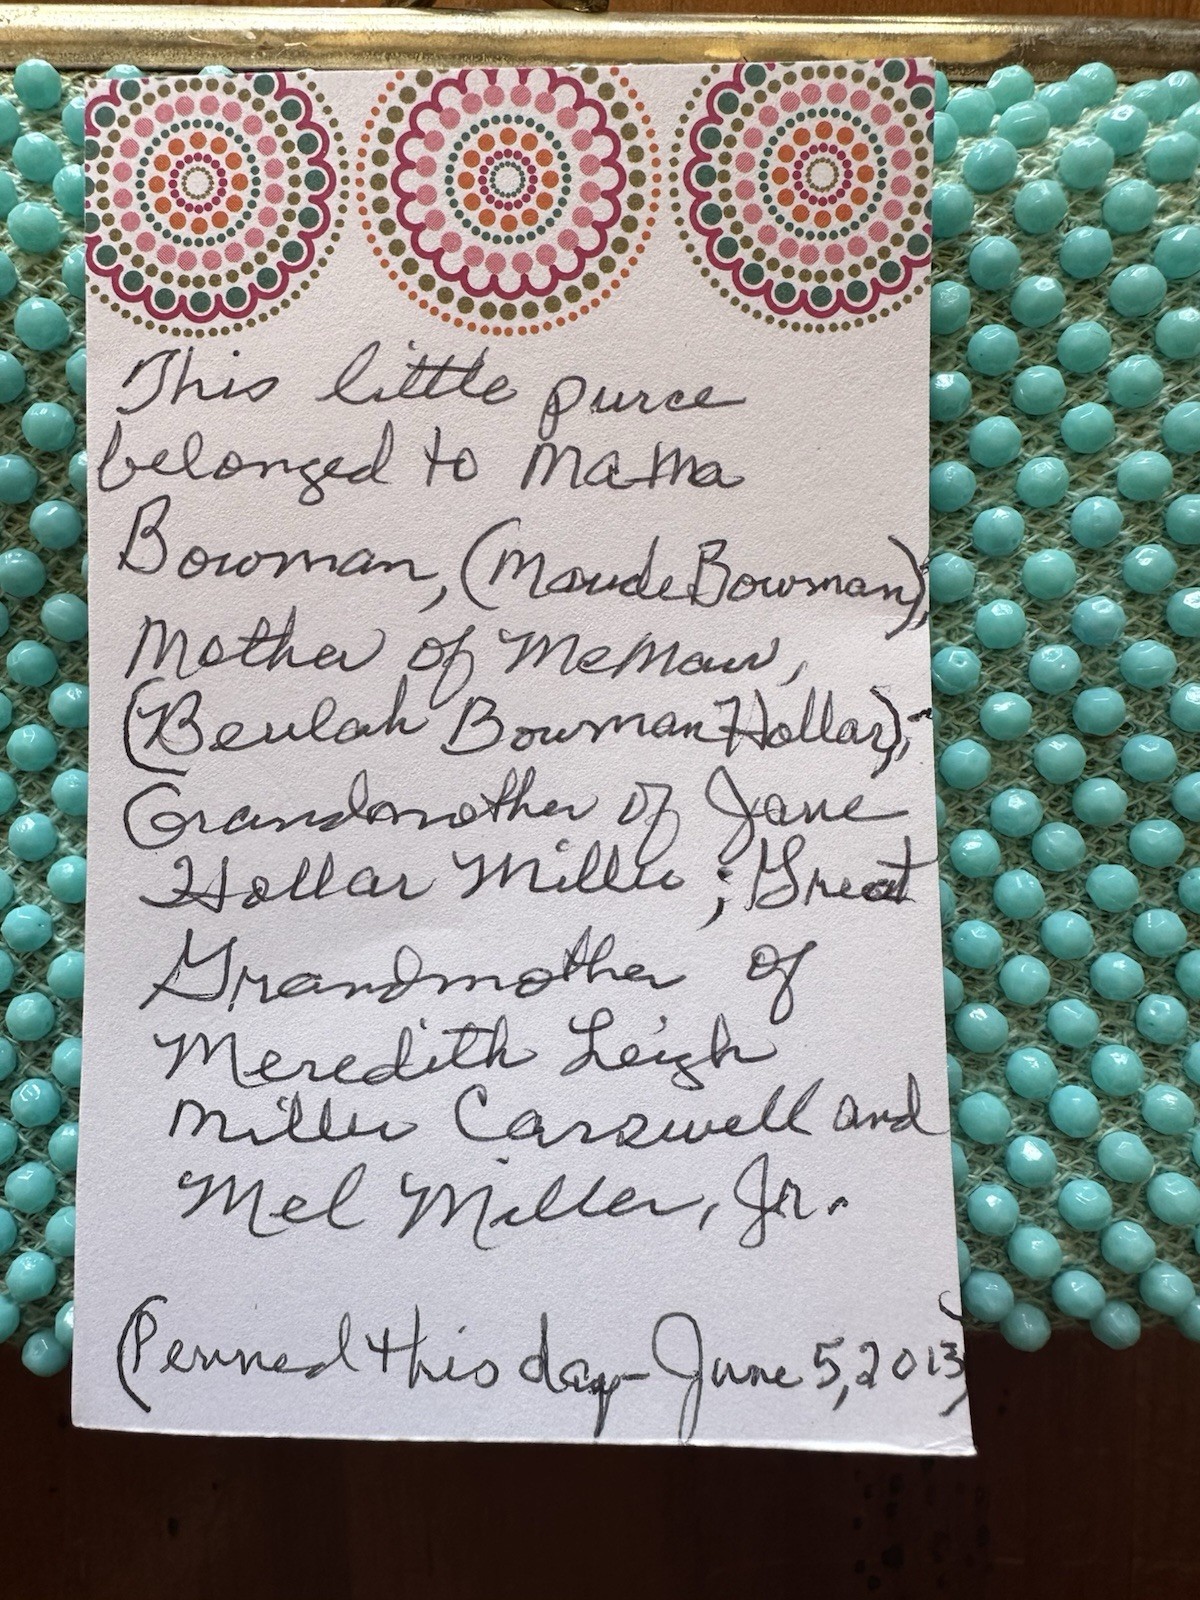 This little purce
belonged to Mama
Bowman, (Maude Bowman),
Mother of MeMaw,
(Beulah Bowman Hollar);
Grandmother of Jane
Hollar Miller; Great
Grandmother of
Meredith Leigh
Miller Carswell and
Mel Miller, Jr.
(Penned this day - June 5, 2013)